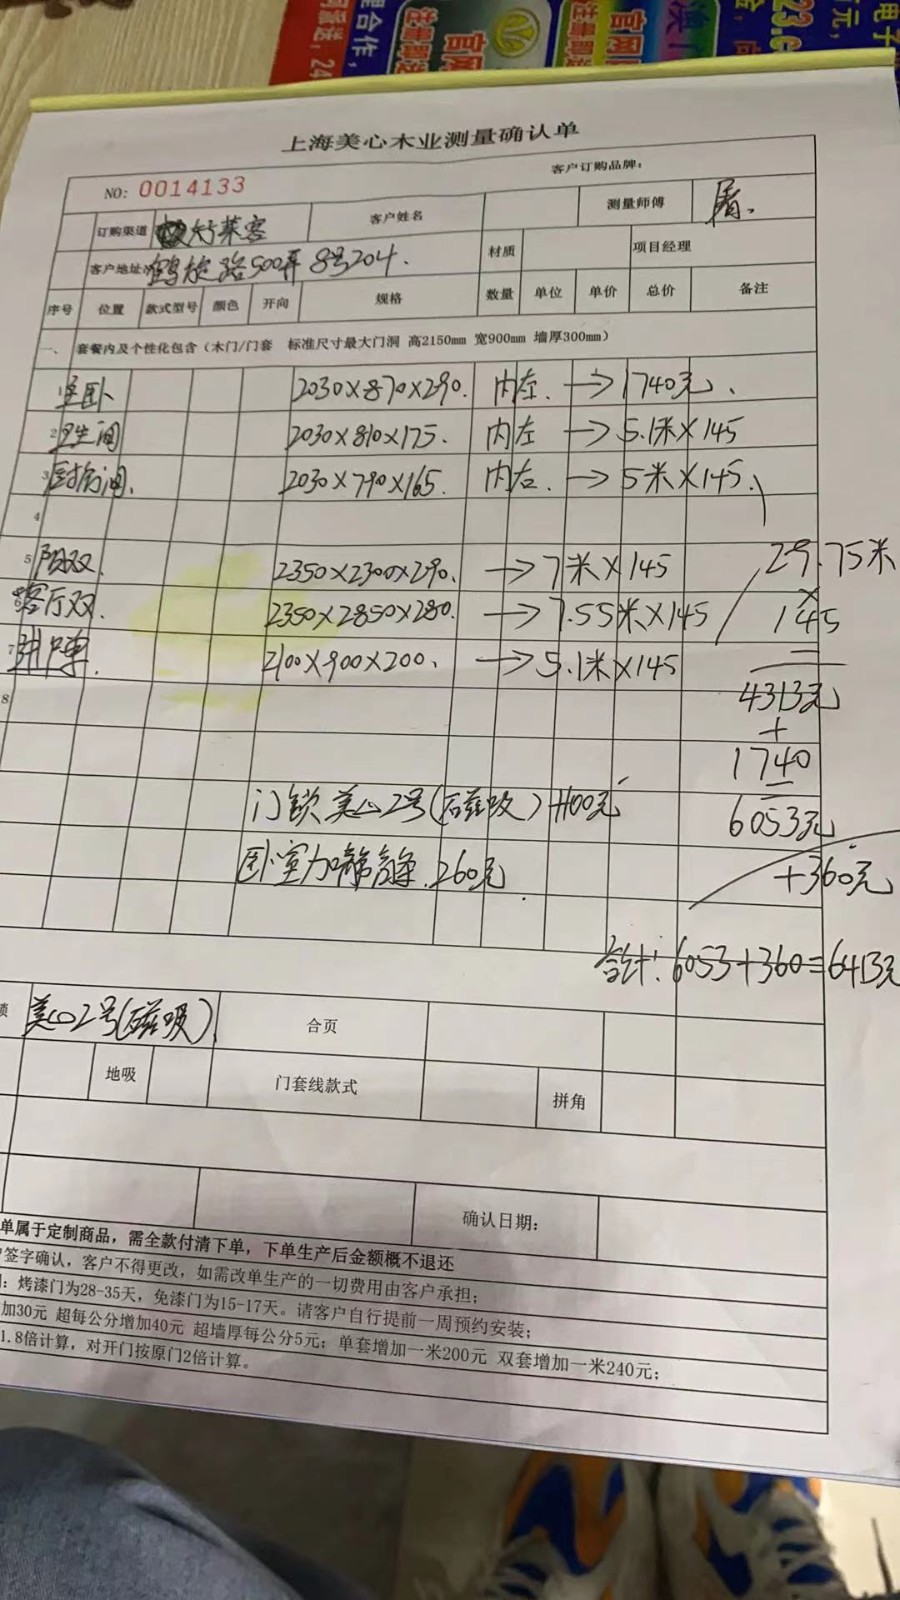 上海美心木业测量确认单
客户订购品牌：
NO: 0014133
订购渠道 好莱客 客户姓名 测量师傅
客户地址 鹤旋路500弄 8号204. 材质 项目经理
序号 位置 款式型号 颜色 开向 规格 数量 单位 单价 总价 备注
一、 套餐内及个性化包含（木门/门套 标准尺寸最大门洞 高2150mm 宽900mm 墙厚300mm）
1 主卧 2030×870×290. 内左. →1740元、
2 卫生间 2030×810×175. 内左 →5.1米×145
3 厨房间. 2030×790×165. 内右. →5米×145.
4
5 阳双. 2350×2300×290. →7米×145
客厅双. 2350×2850×280. →7.55米×145
7 进户单. 2100×900×200. →5.1米×145
8
29.75米
×
145
=
4313元
+
1740
=
6053元
+360元
门锁美心2号(磁吸) +100元
卧室加 静. 260元
合计: 6053+360=6413元
美心2号(磁吸) 合页
地吸 门套线款式 拼角
确认日期：
单属于定制商品，需全款付清下单，下单生产后金额概不退还
签字确认，客户不得更改，如需改单生产的一切费用由客户承担；
：烤漆门为28-35天，免漆门为15-17天。请客户自行提前一周预约安装；
加30元 超每公分增加40元 超墙厚每公分5元；单套增加一米200元 双套增加一米240元；
1.8倍计算，对开门按原门2倍计算。